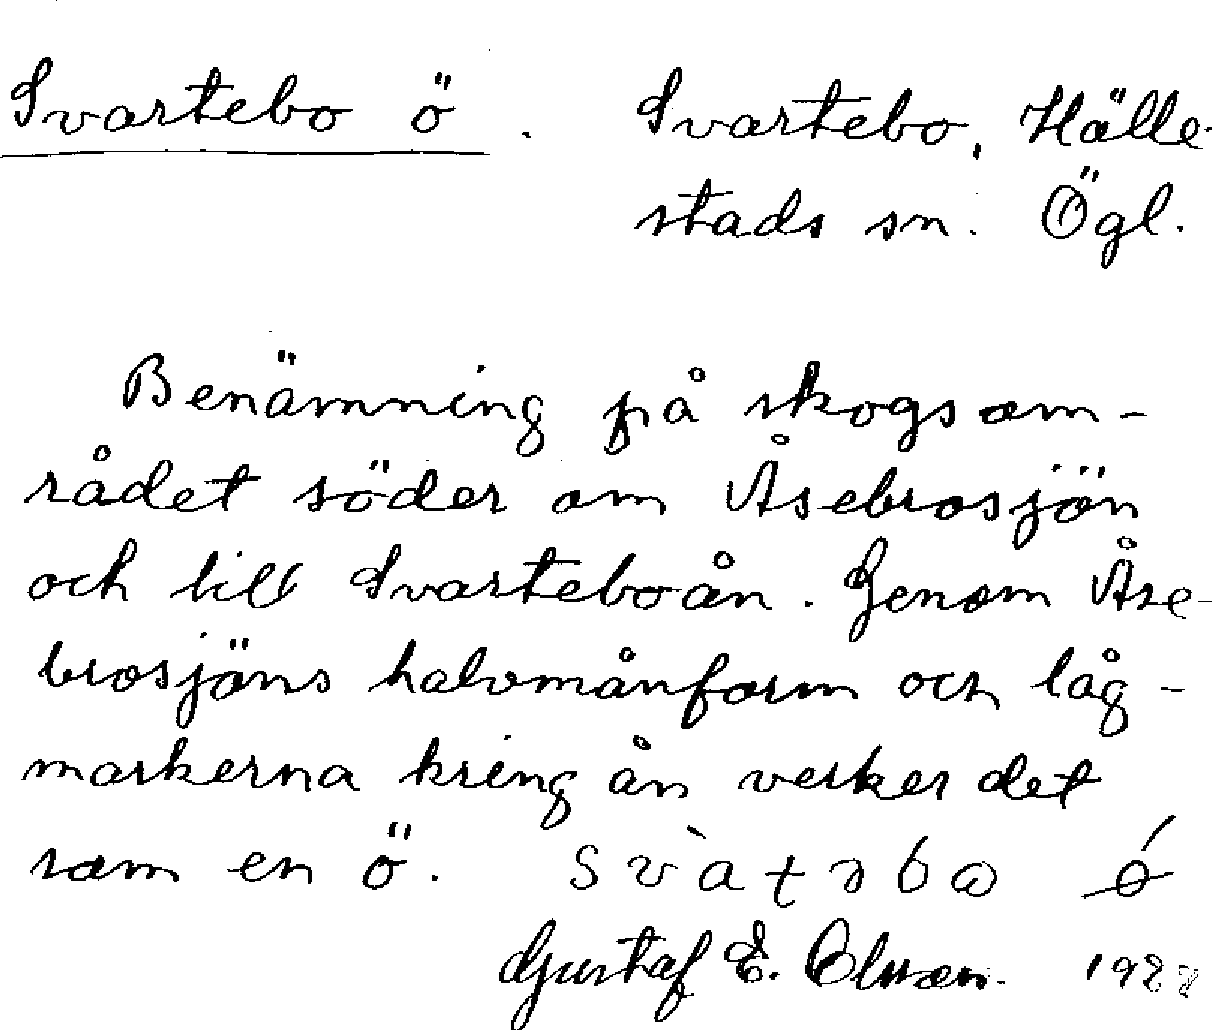 Svartebo ö. Svartebo, Hälle-
stads sn. Ögl.
Benämning på skogsom-
rådet söder om Åsebrosjön
och till Svarteboån. Genom Åse-
brosjöns halvmånform och låg-
markerna kring ån verker det
som en ö.
Gustaf E. Olsson.